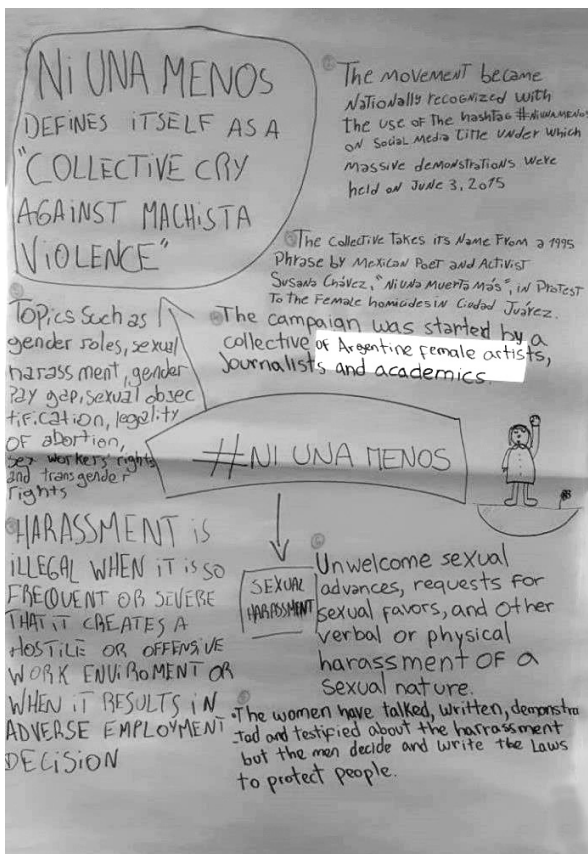 Ni UNA MENOS
DEFINES iTSELF AS A
"COLLECTIVE CRY
AGAINST MACHISTA
ViOLENCE"
The MOVEMENT became
Nationally recognized with
the use of the hashtag #NIUNAMENOS
on Social Media title under which
massive demonstrations were
held on June 3, 2015
The collective takes its Name From a 1995
Phrase by Mexican Poet and Activist
Susana Chávez, "Ni Una Muerta Más", in Protest
To the Female homicides in Ciudad Juárez.
The campaign was started by a
collective of Argentine female artists,
Journalists and academics.
Topics Such as
gender roles, sexual
harassment, gender
Pay gap, sexual objec
tification, legality
OF abortion,
sex workers' rights
and transgender
rights
#NI UNA MENOS
HARASSMENT iS
iLLEGAL WHEN iT iS SO
FREQUENT OR SEVERE
THAT iT CREATES A
HOSTiLE OR OFFENSiVE
WORK ENViROMENT OR
WHEN iT RESULTS iN
ADVERSE EMPLOYMENT
DECiSiON
SEXUAL
HARASSMENT
Unwelcome sexual
advances, requests for
sexual favors, and other
verbal or physical
harassment OF a
sexual nature.
•The women have talked, written, demonstra
tad and testified about the harrassment
but the men decide and write the Laws
to protect people.